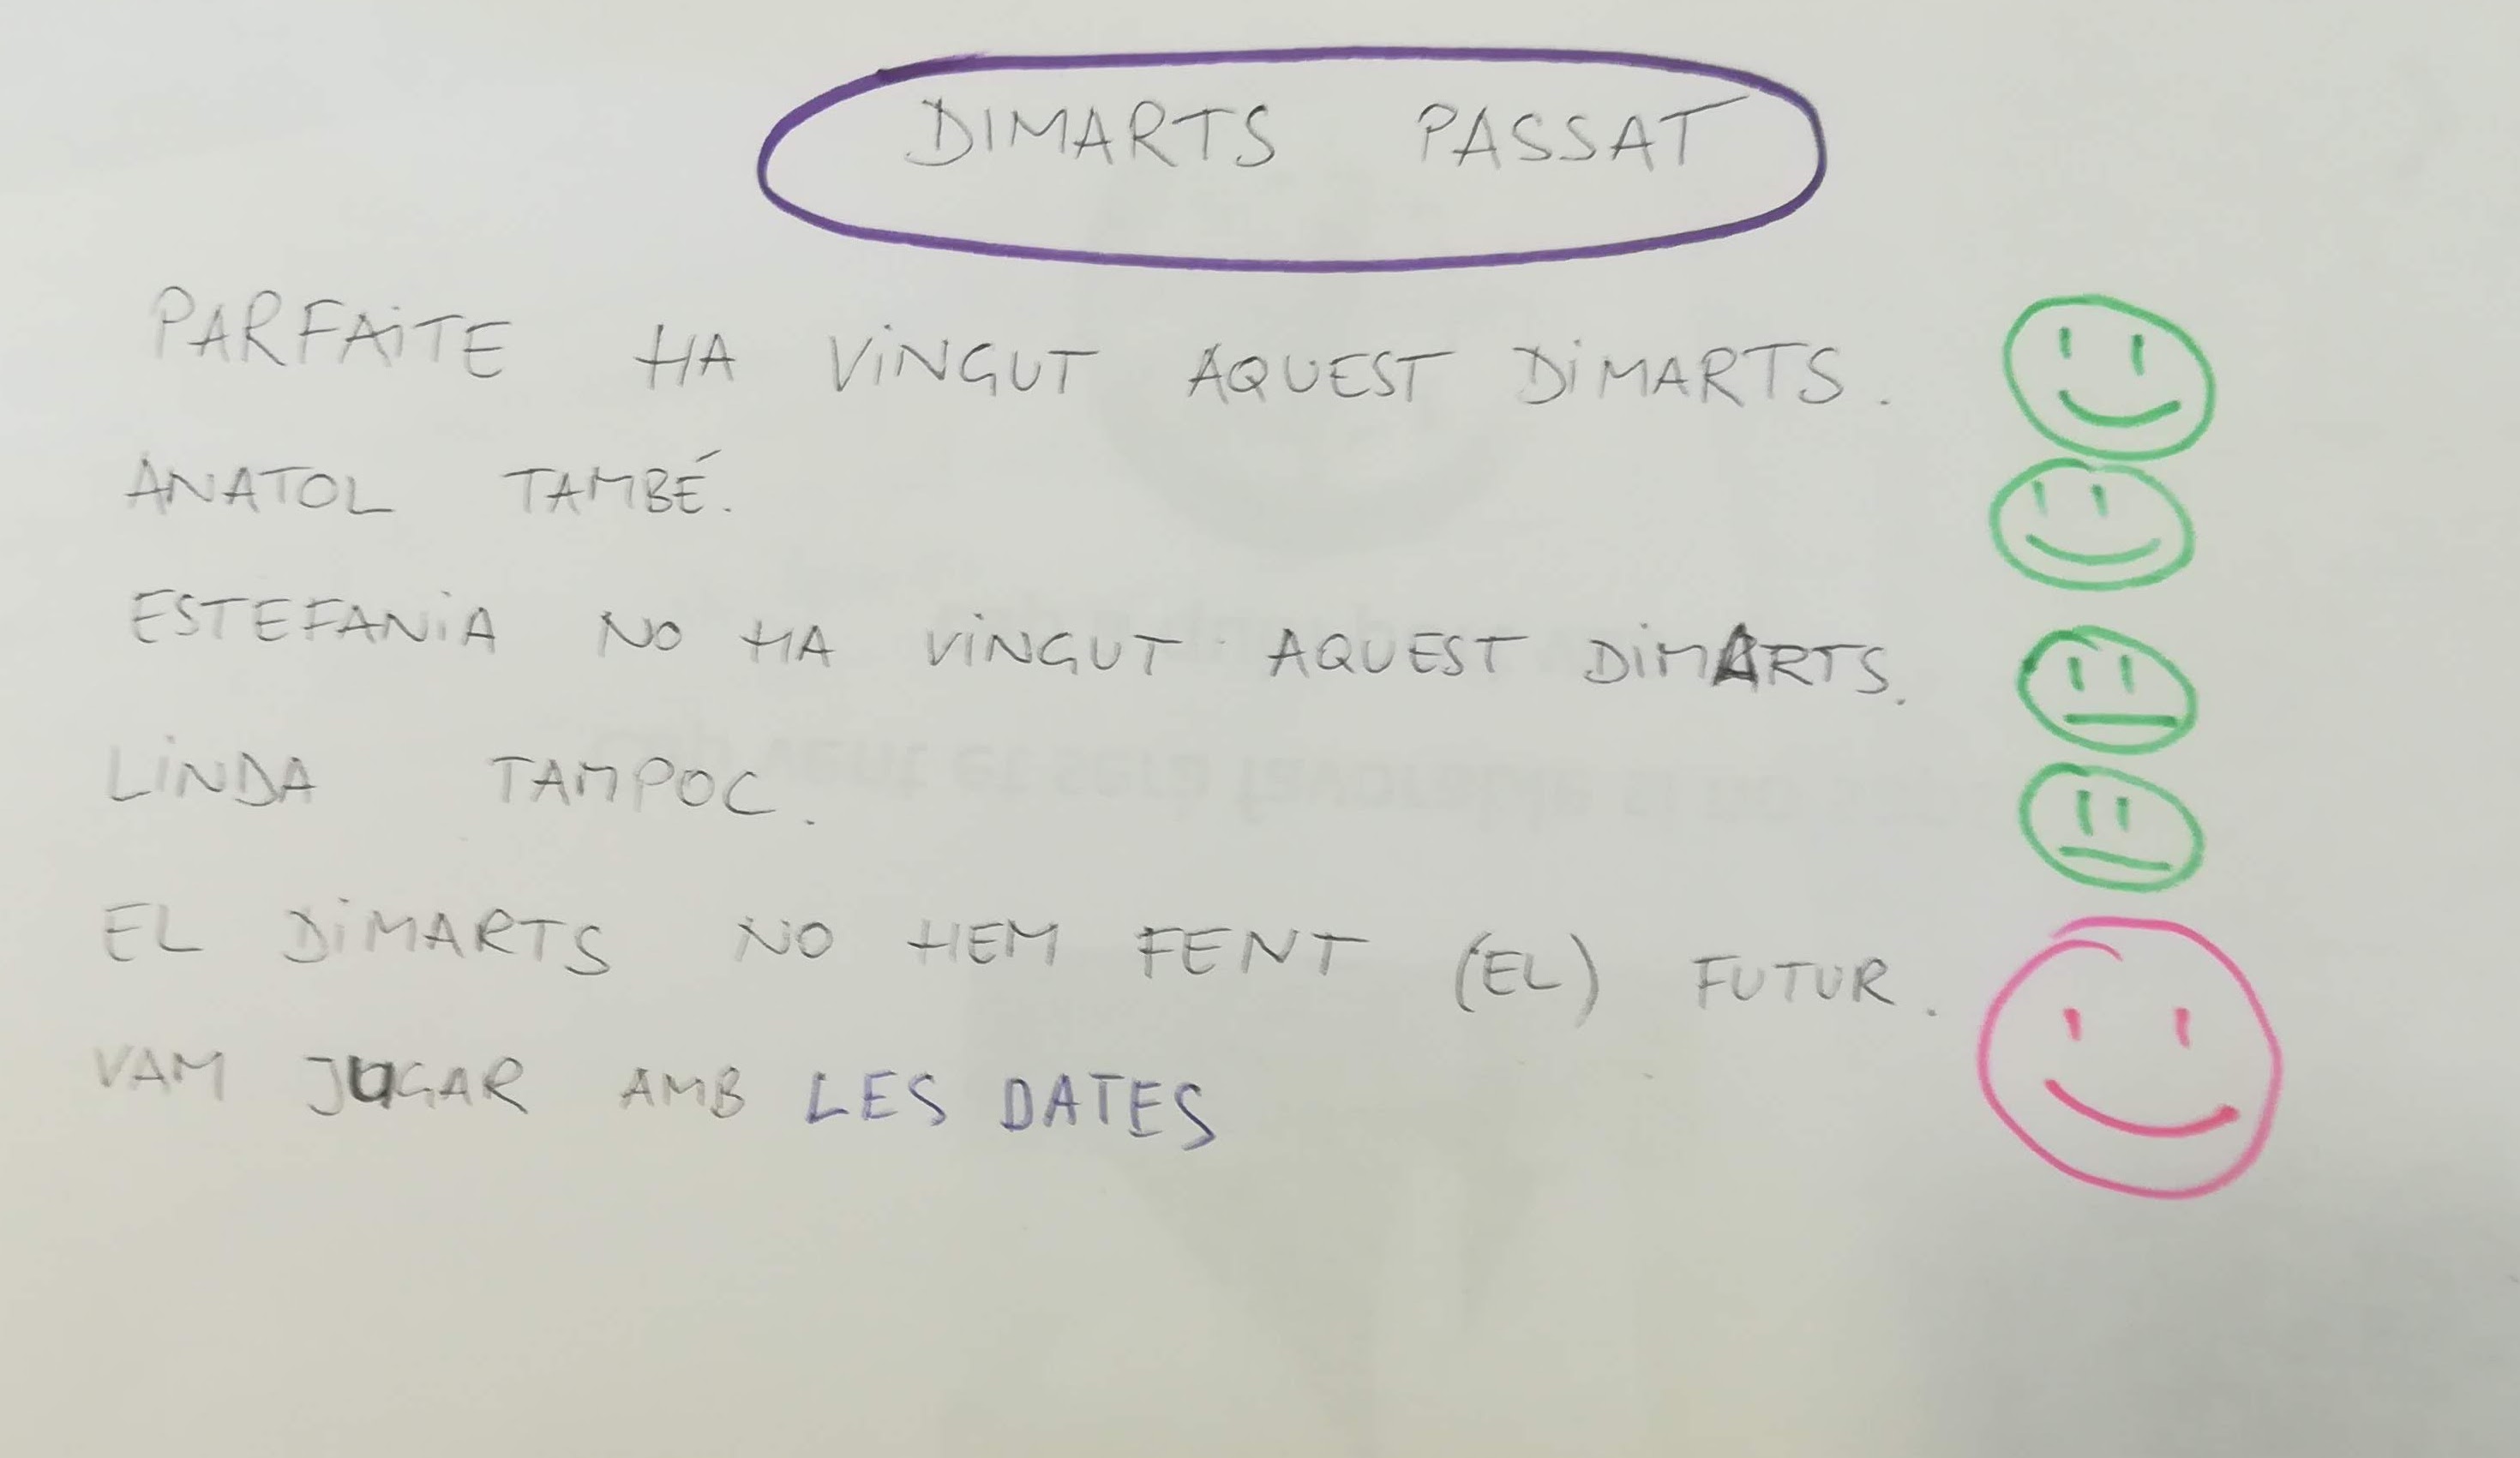 DIMARTS PASSAT
PARFAITE HA VINGUT AQUEST DIMARTS.
ANATOL TAMBÉ.
ESTEFANIA NO HA VINGUT AQUEST DIMARTS.
LINDA TAMPOC.
EL DIMARTS NO HEM FENT (EL) FUTUR.
VAM JUGAR AMB LES DATES